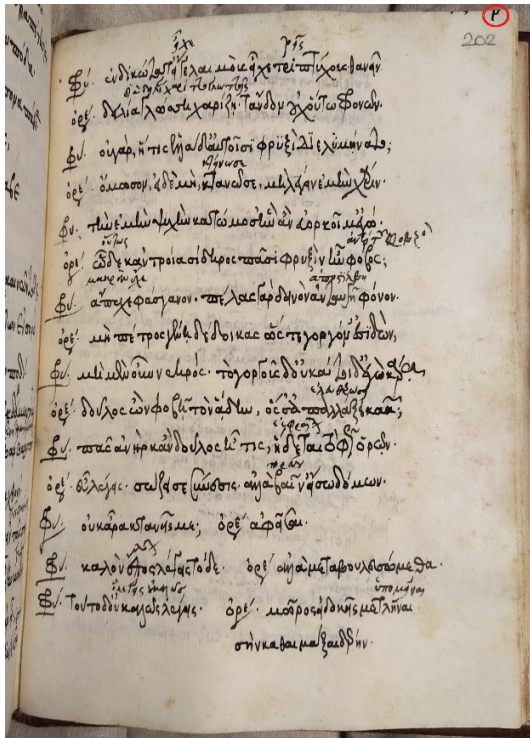 202
Φρύ. ἐνδικώτατ' εἴ γε λαιμοὺς εἶχε τριπτύχους θανεῖν.
ὀρέ. δειλίᾳ γλώσσῃ χαρίζῃ. τἄνδον οὐχ οὕτω φρονῶν.
Φρύ. οὐ γὰρ, ἥτις ἑλλάδ' αὐτοῖσι φρυξὶ διελυμήνατο;
ὀρέ. ὄμοσον, εἰ δὲ μὴ, κτανῶ σε, μὴ λέγειν ἐμὴν χάριν.
Φρύ. τὴν ἐμὴν ψυχὴν κατώμοσ' ἣν ἂν εὐορκοῖμ' ἐγώ.
οὕτως
ὀρέ. ὧδε κἀν τροίᾳ σίδηρος πᾶσι φρυξὶν ἦν φόβος;
Φρύ. ἄπεχε φάσγανον. πέλας γὰρ δεινὸν ἀνταυγεῖ φόνον.
ὀρέ. μὴ πέτρος γένῃ δέδοικας ὥστε γοργόν' εἰσιδών,
Φρύ. μὴ μὲν οὖν νεκρός. τὸ γοργοῦς δ' οὐ κάτοιδ' ἐγὼ κάρα.
ὀρέ. δοῦλος ὢν φοβῇ τὸν ἅδην, ὅς σ' ἀπαλλάξει κακῶν;
Φρύ. πᾶς ἀνὴρ κἂν δοῦλος ᾖ τις, ἥδεται τὸ φῶς ὁρῶν.
ὀρέ. εὖ λέγεις. σώζει σε σύνεσις. ἀλλὰ βαῖν' εἴσω δόμων.
Φρύ. οὐκ ἄρα κτανεῖς με; ὀρέ. ἀφεῖσαι.
Φρύ. καλὸν ἔπος λέγεις τόδε. ὀρέ. ἀλλὰ μεταβουλευσόμεθα.
ὑπομεῖναι
Φρύ. τοῦτο δ' οὐ καλῶς λέγεις. ὀρέ. μῶρος εἰ δοκεῖς με τλῆναι
σὴν καθαιμάξαι δέρην.